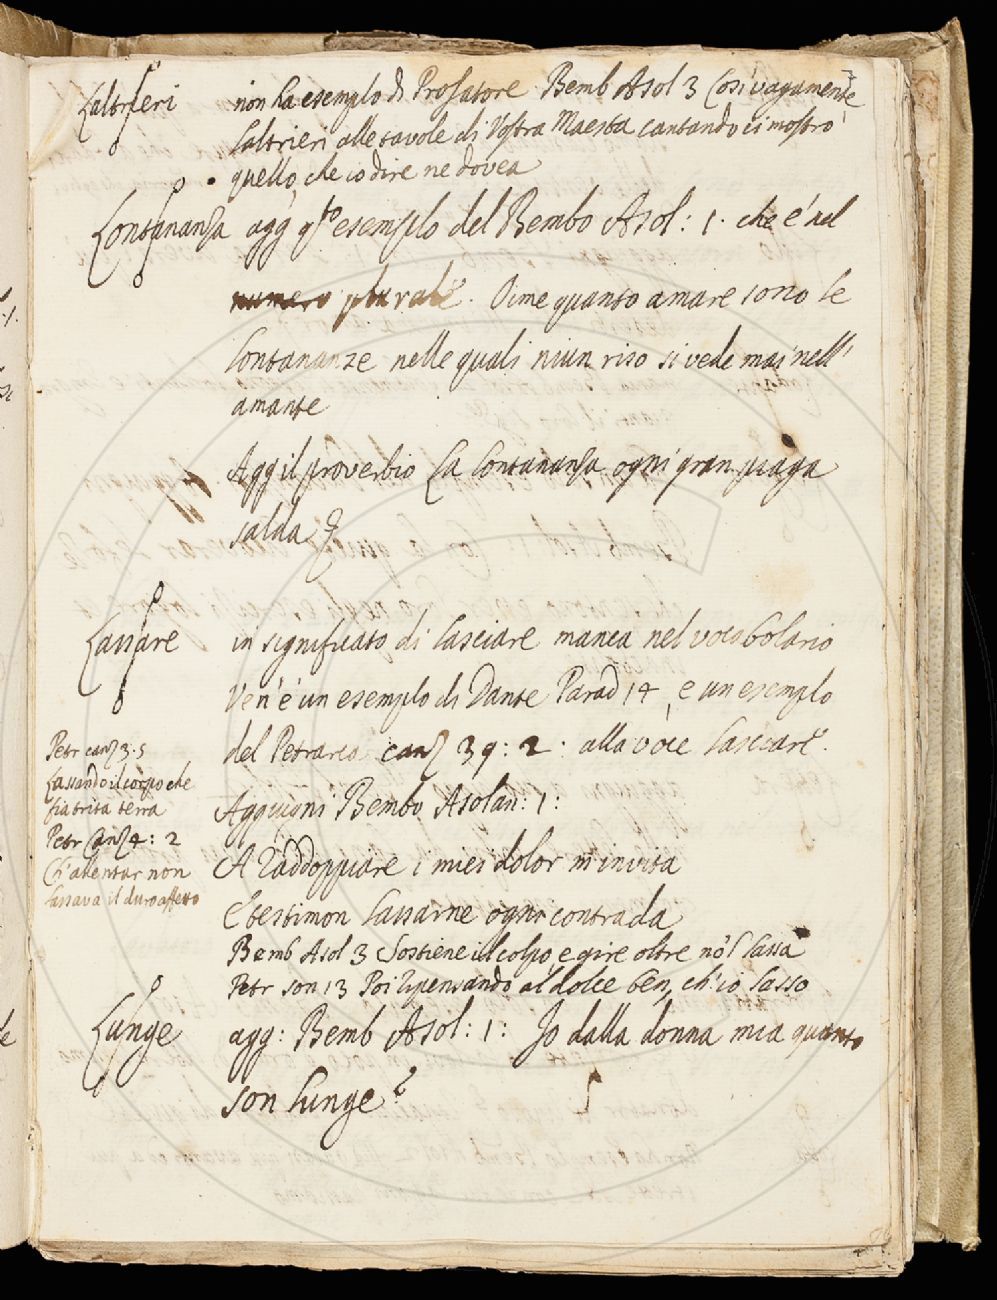 Laltrieri non ha esemplo di Prosatore Bemb Asol 3 Così vagamente
laltrieri alle tavole di Vostra Maesta cantando ci mostrò
quello, che io dire ne dovea
Lontananza agg qto esemplo del Bembo Asol: 1. che è nel
numero plurale. Oime quanto amare sono le
lontananze nelle quali niun riso si vede mai nell'
amante
Agg il proverbio La lontananza ogni gran piaga
salda
Lassare in significato di lasciare manca nel vocobolario
Ven'è un esemplo di Dante Parad 14, e un esemplo
del Petrarca canz 39: 2. alla voce lasciare.
Aggiugni Bembo Asolan: 1:
A raddoppiare i miei dolor m'invita
E testimon lassarne ogni contrada
Bemb Asol 3 Sostiene il colpo, e gire oltre nol lassa
Petr son 13 Poi ripensando al dolce ben, ch'io lasso
Petr canz 3.5
Lassando il corpo che
fia trita terra
Petr Canz 4: 2
Ch'allentar non
lassava il duro affetto
Lunge agg: Bemb Asol: 1: Io dalla donna mia quanto
son lunge?